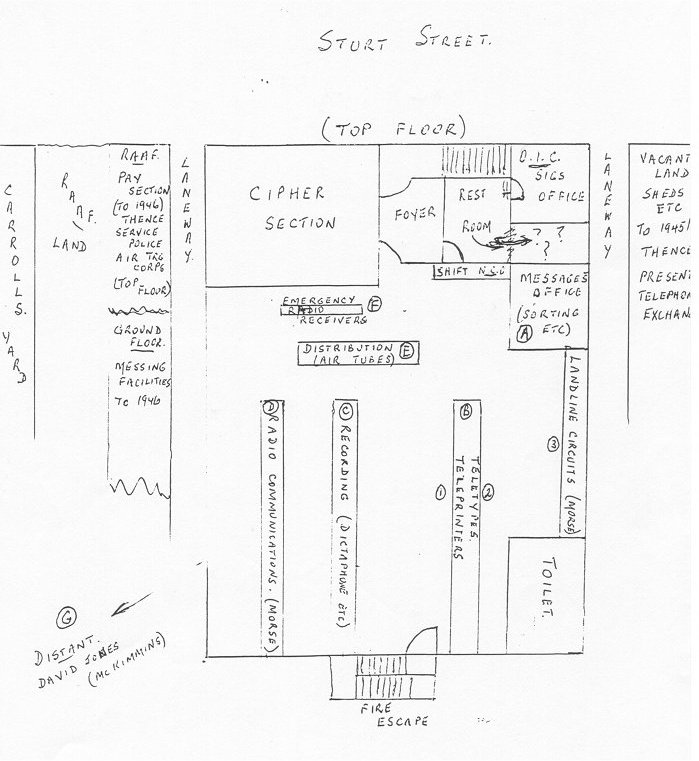 STURT STREET.
(TOP FLOOR)
CARROLLS YARD
RAAF.
LAND
RAAF.
PAY
SECTION
(TO 1946)
THENCE
SERVICE
POLICE
AIR TRG
CORPS
(TOP
FLOOR)
GROUND
FLOOR.
MESSING
FACILITIES
TO 1946
LANEWAY.
CIPHER
SECTION
FOYER
REST
ROOM
O.I.C.
SIGS
OFFICE
? ?
?
SHIFT N.C.O
MESSAGES
OFFICE
(SORTING
ETC)
A
LANEWAY
VACANT
LAND
SHEDS
ETC
TO 1945/
THENCE
PRESENT
TELEPHON
EXCHAN
EMERGENCY
RADIO
RECEIVERS
F
DISTRIBUTION
(AIR TUBES)
E
D
RADIO COMMUNICATIONS. (MORSE)
C
RECORDING (DICTAPHONE ETC)
B
TELETYPES.
TELEPRINTERS
1
2
3
LANDLINE CIRCUITS (MORSE)
TOILET.
G
DISTANT.
DAVID JONES
(MCKIMMINS)
FIRE
ESCAPE